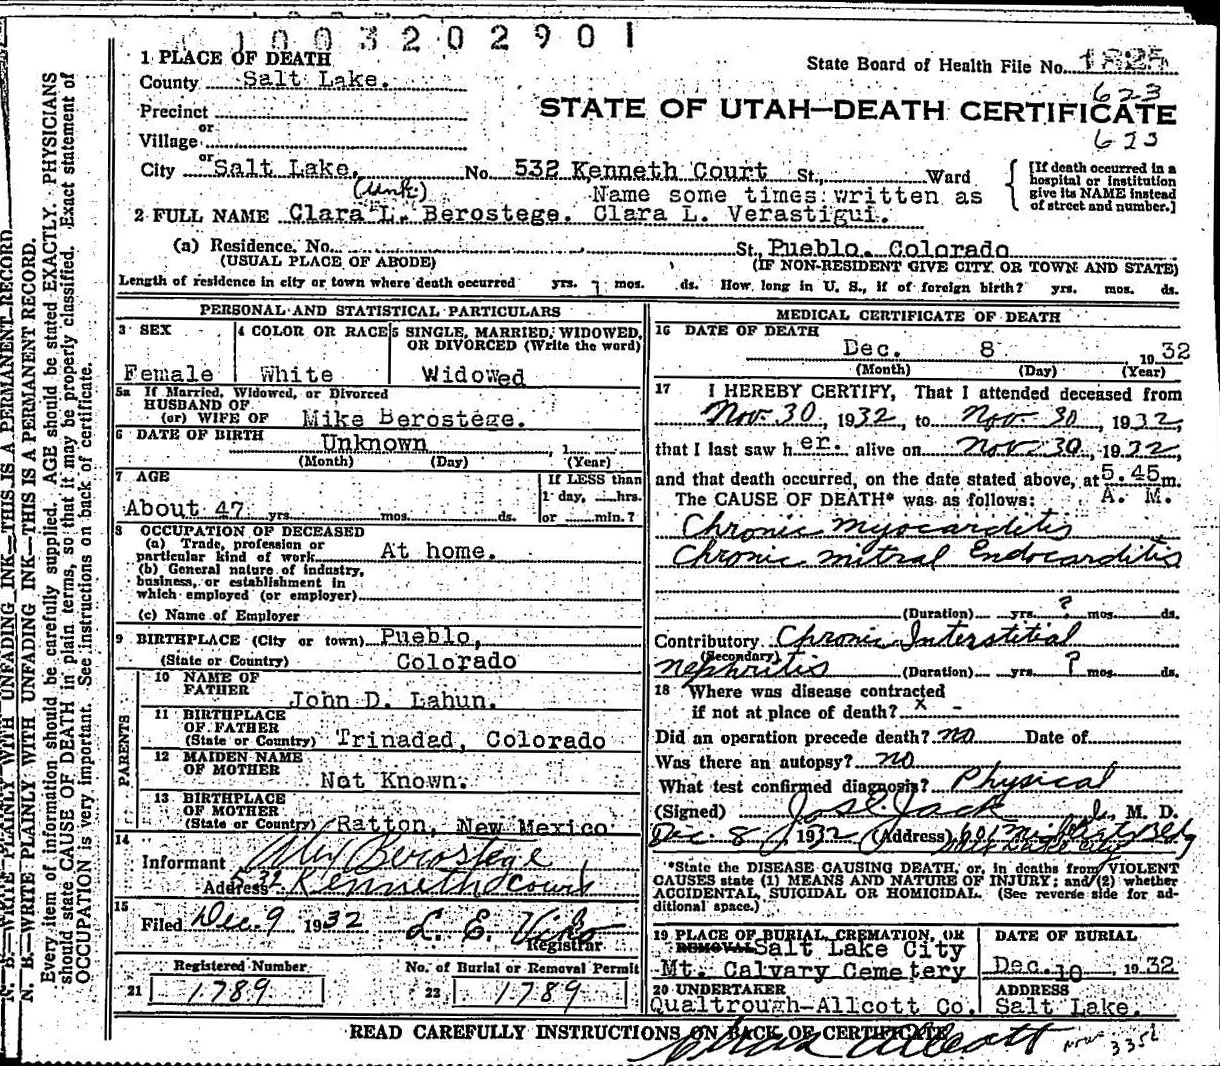 1003202901
1 PLACE OF DEATH
State Board of Health File No. 1825
County Salt Lake.
623
Precinct
STATE OF UTAH—DEATH CERTIFICATE
or
Village
623
or
City Salt Lake. No. 532 Kenneth Court St., Ward
[If death occurred in a hospital or institution give its NAME instead of street and number.]
(Unk.) Name some times written as
2 FULL NAME Clara L. Berostege. Clara L. Verastigui.
(a) Residence. No. St., Pueblo. Colorado
(USUAL PLACE OF ABODE) (IF NON-RESIDENT GIVE CITY OR TOWN AND STATE)
Length of residence in city or town where death occurred yrs. mos. ds. How long in U. S., if of foreign birth? yrs. mos. ds.
PERSONAL AND STATISTICAL PARTICULARS
3 SEX
Female
4 COLOR OR RACE
White
5 SINGLE, MARRIED, WIDOWED, OR DIVORCED (Write the word)
Widowed
5a If Married, Widowed, or Divorced
HUSBAND OF
(or) WIFE OF Mike Berostege.
6 DATE OF BIRTH Unknown , 1
(Month) (Day) (Year)
7 AGE
About 47 yrs. mos. ds.
If LESS than
1 day, hrs.
or min.?
8 OCCUPATION OF DECEASED
(a) Trade, profession or
particular kind of work At home.
(b) General nature of industry,
business, or establishment in
which employed (or employer)
(c) Name of Employer
9 BIRTHPLACE (City or town) Pueblo,
(State or Country) Colorado
PARENTS
10 NAME OF
FATHER John D. Lahun.
11 BIRTHPLACE
OF FATHER
(State or Country) Trinadad, Colorado
12 MAIDEN NAME
OF MOTHER Not Known.
13 BIRTHPLACE
OF MOTHER
(State or Country) Ratton, New Mexico
14
Informant Berostege
Address 532 Kenneth Court
15
Filed Dec. 9 1932 L. E.
Registrar
Registered Number
21 1789
No. of Burial or Removal Permit
22 1789
MEDICAL CERTIFICATE OF DEATH
16 DATE OF DEATH
Dec. 8 , 1932
(Month) (Day) (Year)
17 I HEREBY CERTIFY, That I attended deceased from
Nov. 30, 1932, to Nov. 30, 1932,
that I last saw her. alive on Nov. 30, 1932,
and that death occurred, on the date stated above, at 5.45 m.
The CAUSE OF DEATH* was as follows: A. M.
Chronic myocarditis
Chronic mitral Endocarditis
(Duration) yrs. ? mos. ds.
Contributory Chronic Interstitial
(Secondary)
nephritis (Duration) yrs. ? mos. ds.
18 Where was disease contracted
if not at place of death? x -
Did an operation precede death? no Date of
Was there an autopsy? no
What test confirmed diagnosis? Physical
(Signed) Jos. E. Jack M. D.
Dec. 8, 1932 (Address) 601 Bldg
*State the DISEASE CAUSING DEATH, or, in deaths from VIOLENT
CAUSES state (1) MEANS AND NATURE OF INJURY; and (2) whether
ACCIDENTAL, SUICIDAL OR HOMICIDAL. (See reverse side for ad-
ditional space.)
19 PLACE OF BURIAL, CREMATION, OR
REMOVAL Salt Lake City
Mt. Calvary Cemetery
DATE OF BURIAL
Dec. 10, 1932
20 UNDERTAKER
Qualtrough-Allcott Co.
ADDRESS
Salt Lake.
READ CAREFULLY INSTRUCTIONS ON BACK OF CERTIFICATE
Allcott
3352
N. B.—WRITE PLAINLY WITH UNFADING INK—THIS IS A PERMANENT RECORD.
N. B.—WRITE PLAINLY WITH UNFADING INK—THIS IS A PERMANENT RECORD.
Every item of information should be carefully supplied. AGE should be stated EXACTLY. PHYSICIANS
should state CAUSE OF DEATH in plain terms, so that it may be properly classified. Exact statement of
OCCUPATION is very important. See instructions on back of certificate.